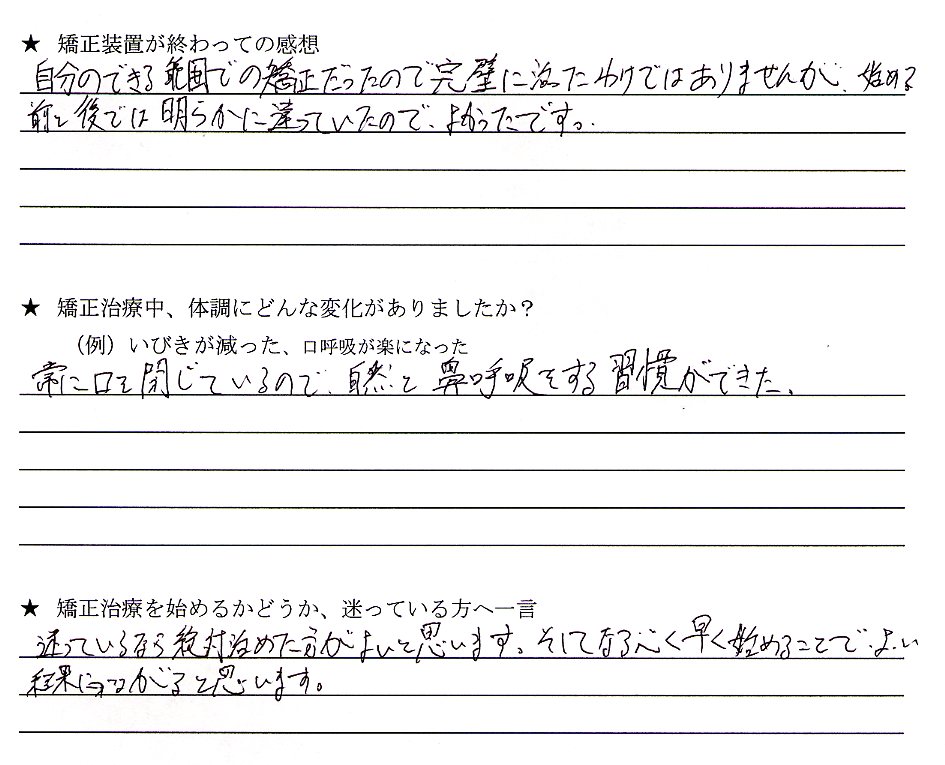 ★ 矯正装置が終わっての感想
自分のできる範囲での矯正だったので完璧に治ったわけではありませんが、始める
前と後では明らかに違っていたので、よかったです。
★ 矯正治療中、体調にどんな変化がありましたか？
（例）いびきが減った、口呼吸が楽になった
常に口を閉じているので、自然と鼻呼吸をする習慣ができた。
★ 矯正治療を始めるかどうか、迷っている方へ一言
迷っているなら絶対治めた方がよいと思います。そしてなるべく早く始めることで、よい
結果につながると思います。